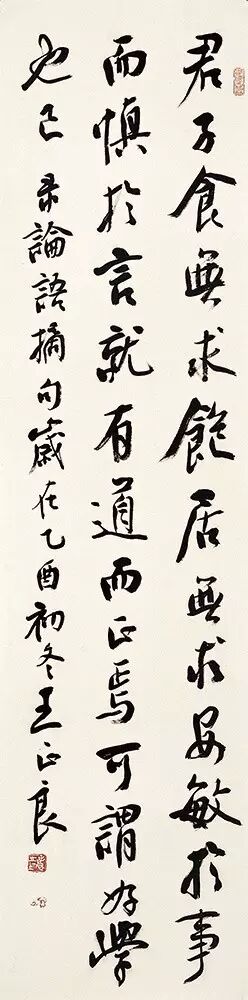 君子食無求飽居無求安敏於事
而慎於言就有道而正焉可謂好學
也已 录論語摘句歲在乙酉初冬王正良